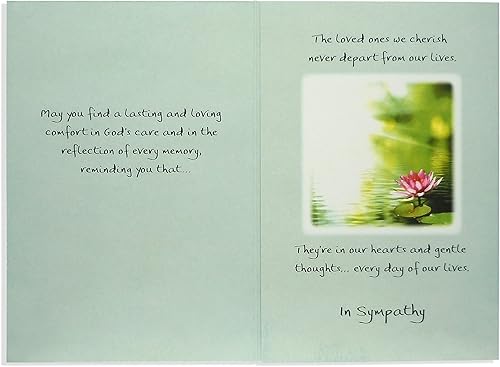 May you find a lasting and loving
comfort in God's care and in the
reflection of every memory,
reminding you that...
The loved ones we cherish
never depart from our lives.
They're in our hearts and gentle
thoughts... every day of our lives.
In Sympathy